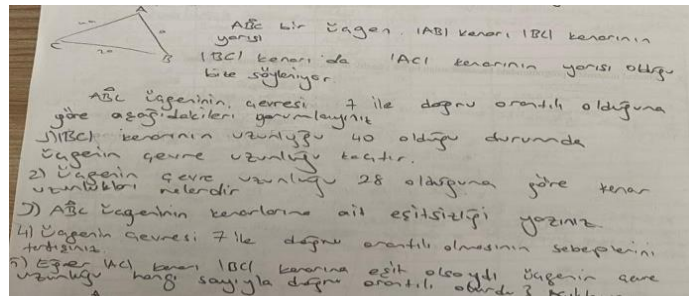 A
C
B
2a
ABC bir üçgen. |AB| kenarı |BC| kenarının
yarısı
|BC| kenarı da |AC| kenarının yarısı olduğu
bize söyleniyor.
ABC üçgeninin, çevresi 7 ile doğru orantılı olduğuna
göre aşağıdakileri yorumlayınız
1) |BC| kenarının uzunluğu 40 olduğu durumda
üçgenin çevre uzunluğu kaçtır.
2) Üçgenin çevre uzunluğu 28 olduğuna göre kenar
uzunlukları nelerdir
3) ABC üçgeninin kenarlarına ait eşitsizliği yazınız
4) Üçgenin çevresi 7 ile doğru orantılı olmasının sebeplerini
tartışınız
5) Eğer |AC| kenarı |BC| kenarına eşit olsaydı üçgenin çevre
uzunluğu hangi sayıyla doğru orantılı olurdu?